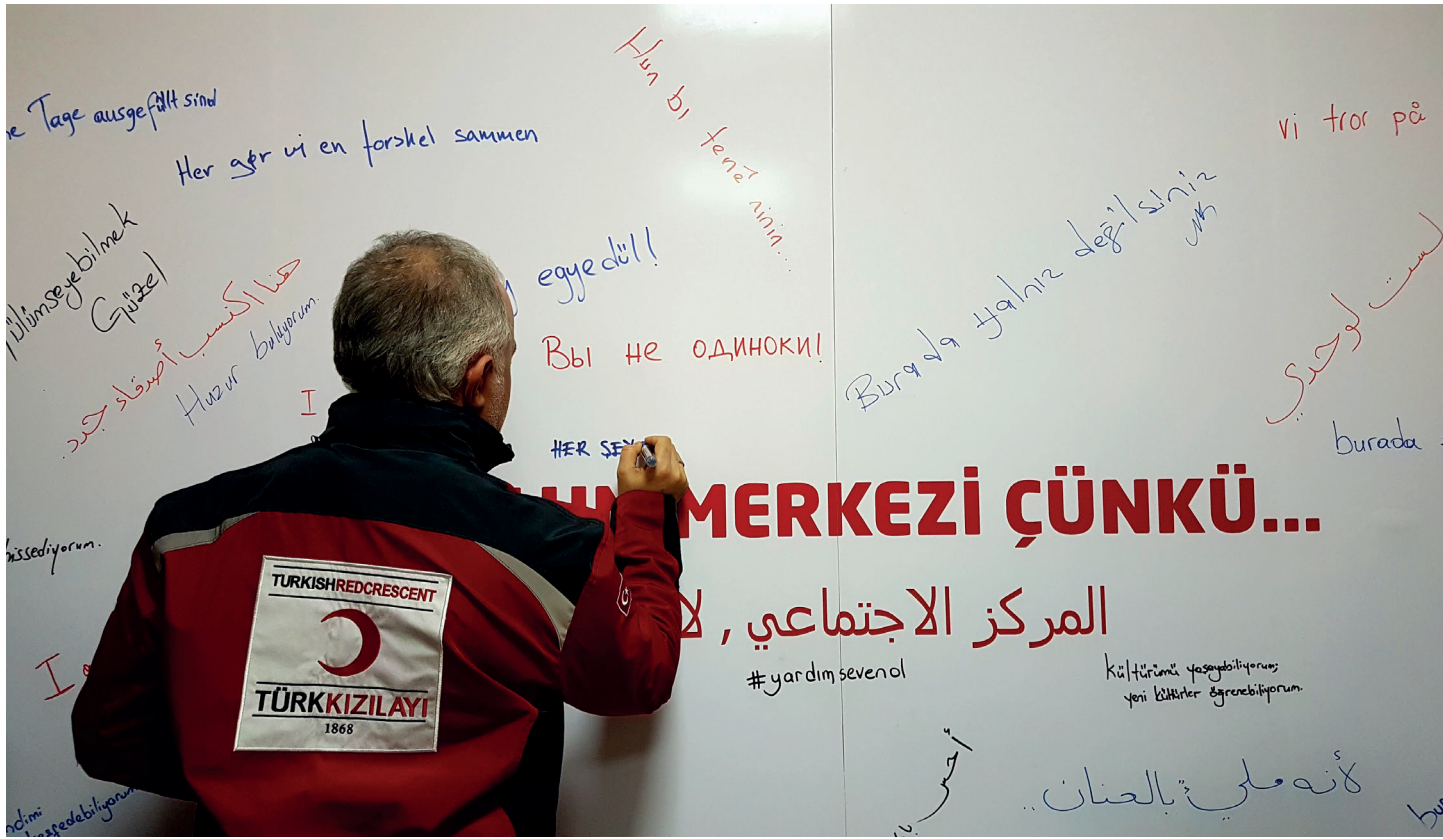 Tage ausgefüllt sind
Her gør vi en forskel sammen
Hün bi tenê ninin...
vi tror på
Gülümseyebilmek
Güzel
هنا اكتسب أصدقاء جدد.
Huzur buluyorum.
egyedül!
Вы не одиноки!
Burada yalnız değilsiniz
لست لوحدي
I
HER ŞEY
burada
MERKEZİ ÇÜNKÜ...
المركز الاجتماعي , لا
hissediyorum.
I
#yardımsevenol
kültürümü yaşayabiliyorum;
yeni kültürler öğrenebiliyorum.
TURKISHREDCRESCENT
TÜRKKIZILAYI
1868
أحس
لأنه مليئ بالحنان..